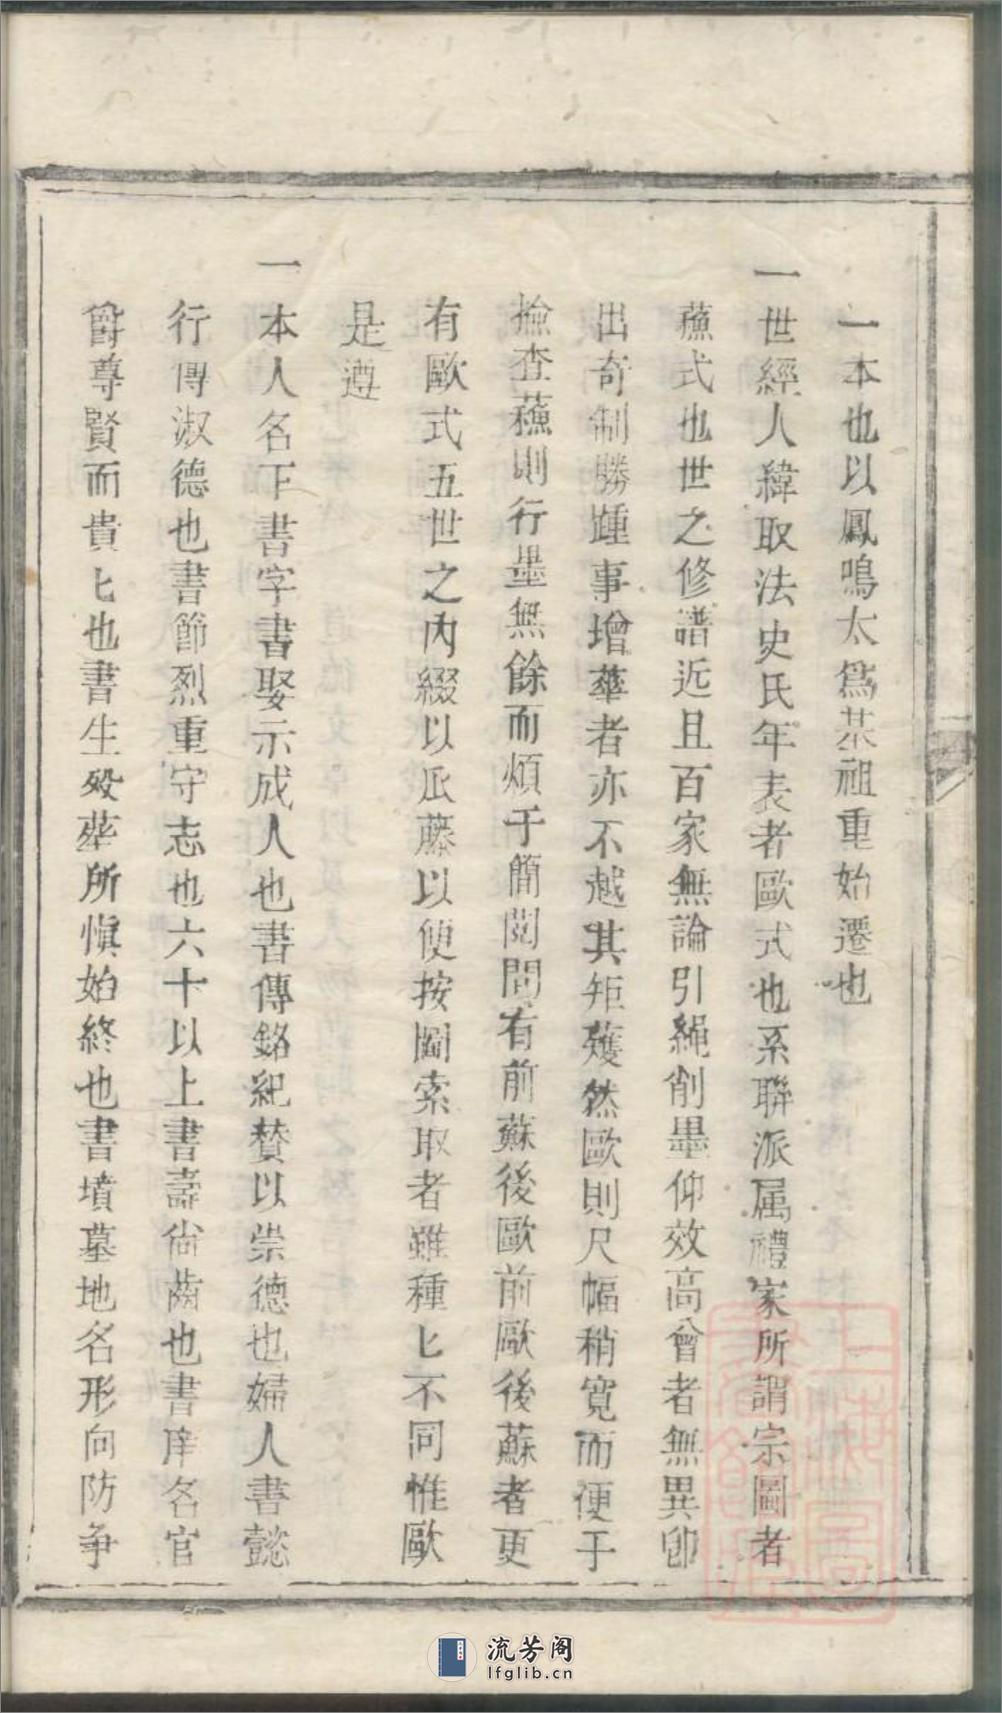 一本也以鳳鳴太爲基祖重始遷也
一世經人緯取法史氏年表者歐式也系聯派属禮家所謂宗圖者
蘓式也世之修譜近且百家無論引繩削墨仰效高曾者無異卽
出奇制勝踵事增華者亦不越其矩矱然歐則尺幅稍寬而便于
撿查蘓則行墨無餘而煩于簡閲間有前蘇後歐前歐後蘇者更
有歐式五世之內綴以瓜藤以便按圖索取者雖種匕不同惟歐
是遵
一本人名下書字書娶示成人也書傳銘紀賛以崇德也婦人書懿
行傳淑德也書節烈重守志也六十以上書壽尙齒也書庠名官
爵尊賢而貴匕也書生歿葬所愼始終也書墳墓地名形向防争
流芳阁
lfglib.cn